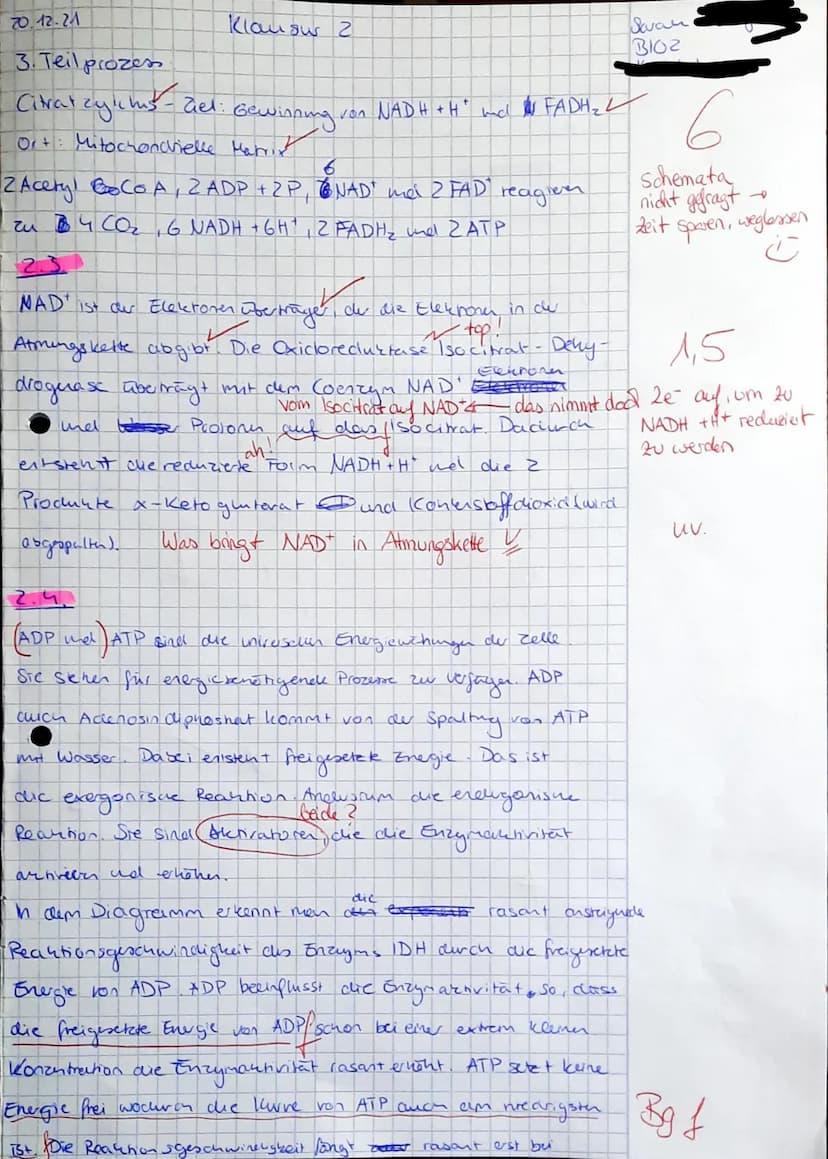 20.12.21
Klausur 2
Sarah
BIO2
3. Teilprozess
Citratzyklus - Ziel: Gewinnung von NADH + H⁺ und FADH₂
6
Ort: Mitochondrielle Matrix
6
2 Acetyl CoA, 2 ADP + 2P, NAD⁺ und 2 FAD⁺ reagieren
Schemata
nicht gefragt →
Zeit sparen, weglassen
zu 4 CO₂, 6 NADH + 6H⁺, 2 FADH₂ und 2 ATP
2.3.
NAD⁺ ist der Elektronenüberträger, der die Elektronen in der
top!
Atmungskette abgibt. Die Oxidoreduktase Isocitrat-Dehy-
1,5
Elektronen
drogenase überträgt mit dem Coenzym NAD⁺
vom Isocitrat auf NAD⁺ ← das nimmt doch 2e⁻ auf, um zu
NADH + H⁺ reduziert
zu werden
und Protonen auf das Isocitrat. Dadurch
ah!
f
entsteht die reduzierte Form NADH + H⁺ und die 2
Produkte α-Ketogluterat und Kohlenstoffdioxid (wird
abgespalten).
Was bringt NAD⁺ in Atmungskette
uv.
2.4.
(ADP und) ATP sind die universellen Energiewährungen der Zelle.
Sie stehen für energiebenötigende Prozesse zur Verfügung. ADP
auch Adenosindiphosphat kommt von der Spaltung von ATP
mit Wasser. Dabei entsteht freigesetzte Energie. Das ist
die exergonische Reaktion. Andersrum die endergonische
beide?
Reaktion. Sie sind Aktivatoren, die die Enzymaktivität
aktivieren und erhöhen.
die
In dem Diagramm erkennt man rasant ansteigende
Reaktionsgeschwindigkeit des Enzyms IDH durch die freigesetzte
Energie von ADP. ADP beeinflusst die Enzymaktivität so, dass
die freigesetzte Energie von ADP f schon bei einer extrem kleinen
Konzentration die Enzymaktivität rasant erhöht. ATP setzt keine
Energie frei wodurch die Kurve von ATP auch am niedrigsten
Bg f
ist. f Die Reaktionsgeschwindigkeit fängt rasant erst bei